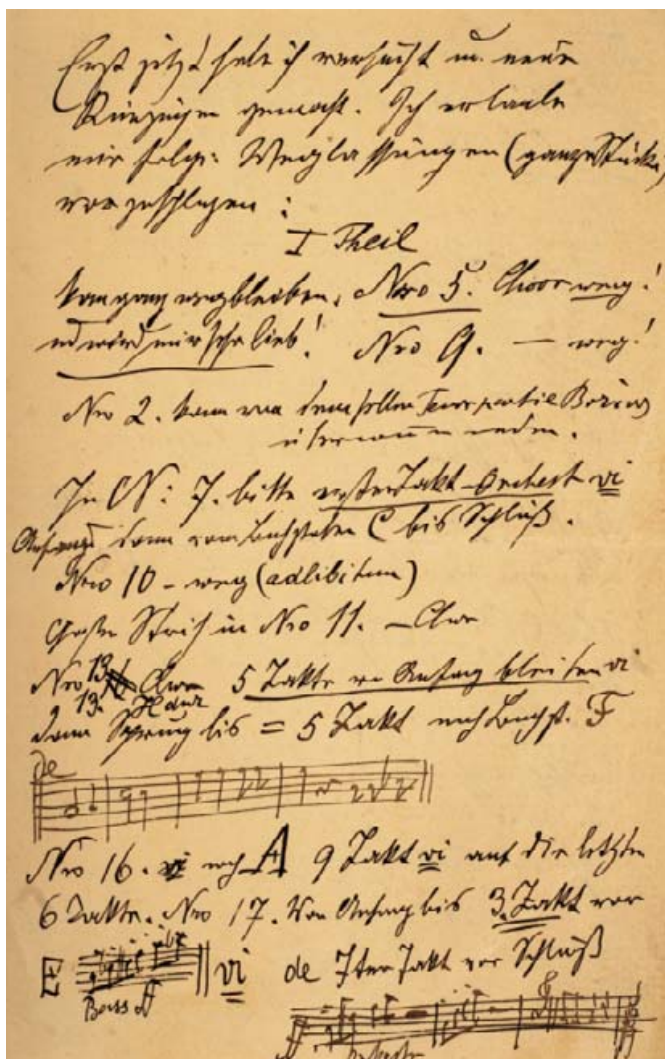 Erst jetzt habe ich versucht u. neue
Kürzungen gemacht. Ich erlaube
mir folg: Weglassungen (ganze Stücke)
vorzuschlagen:
I Theil
kann ganz wegbleiben. Nro 5. Choor weg!
und wird mir sehr lieb! Nro 9. — weg!
Nro 2. kann von dem selben
übernommen werden.
In CN: 7. bitte erster Takt - Orchest vi
Anfang dann vom Buchstaben C bis Schluß.
Nro 10 - weg (adlibitum)
Großer Strich in Nro 11. - Chor
Nro 13 Chor 5 Takte v. Anfang bleiben vi
13. H dur
dann Sprung bis = 5 Takt nach Buchst. F
de
Nro 16. vi nach A 9 Takt vi auf die letzten
6 Takte. Nro 17. Von Anfang bis 3. Takt vor
E vi de 7ter Takt vor Schluß
Bass